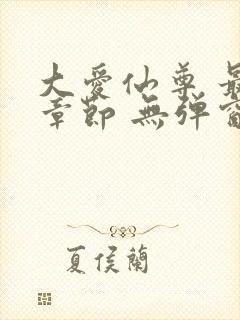 大愛仙尊 最
章節 無弹窗
夏侯蘭